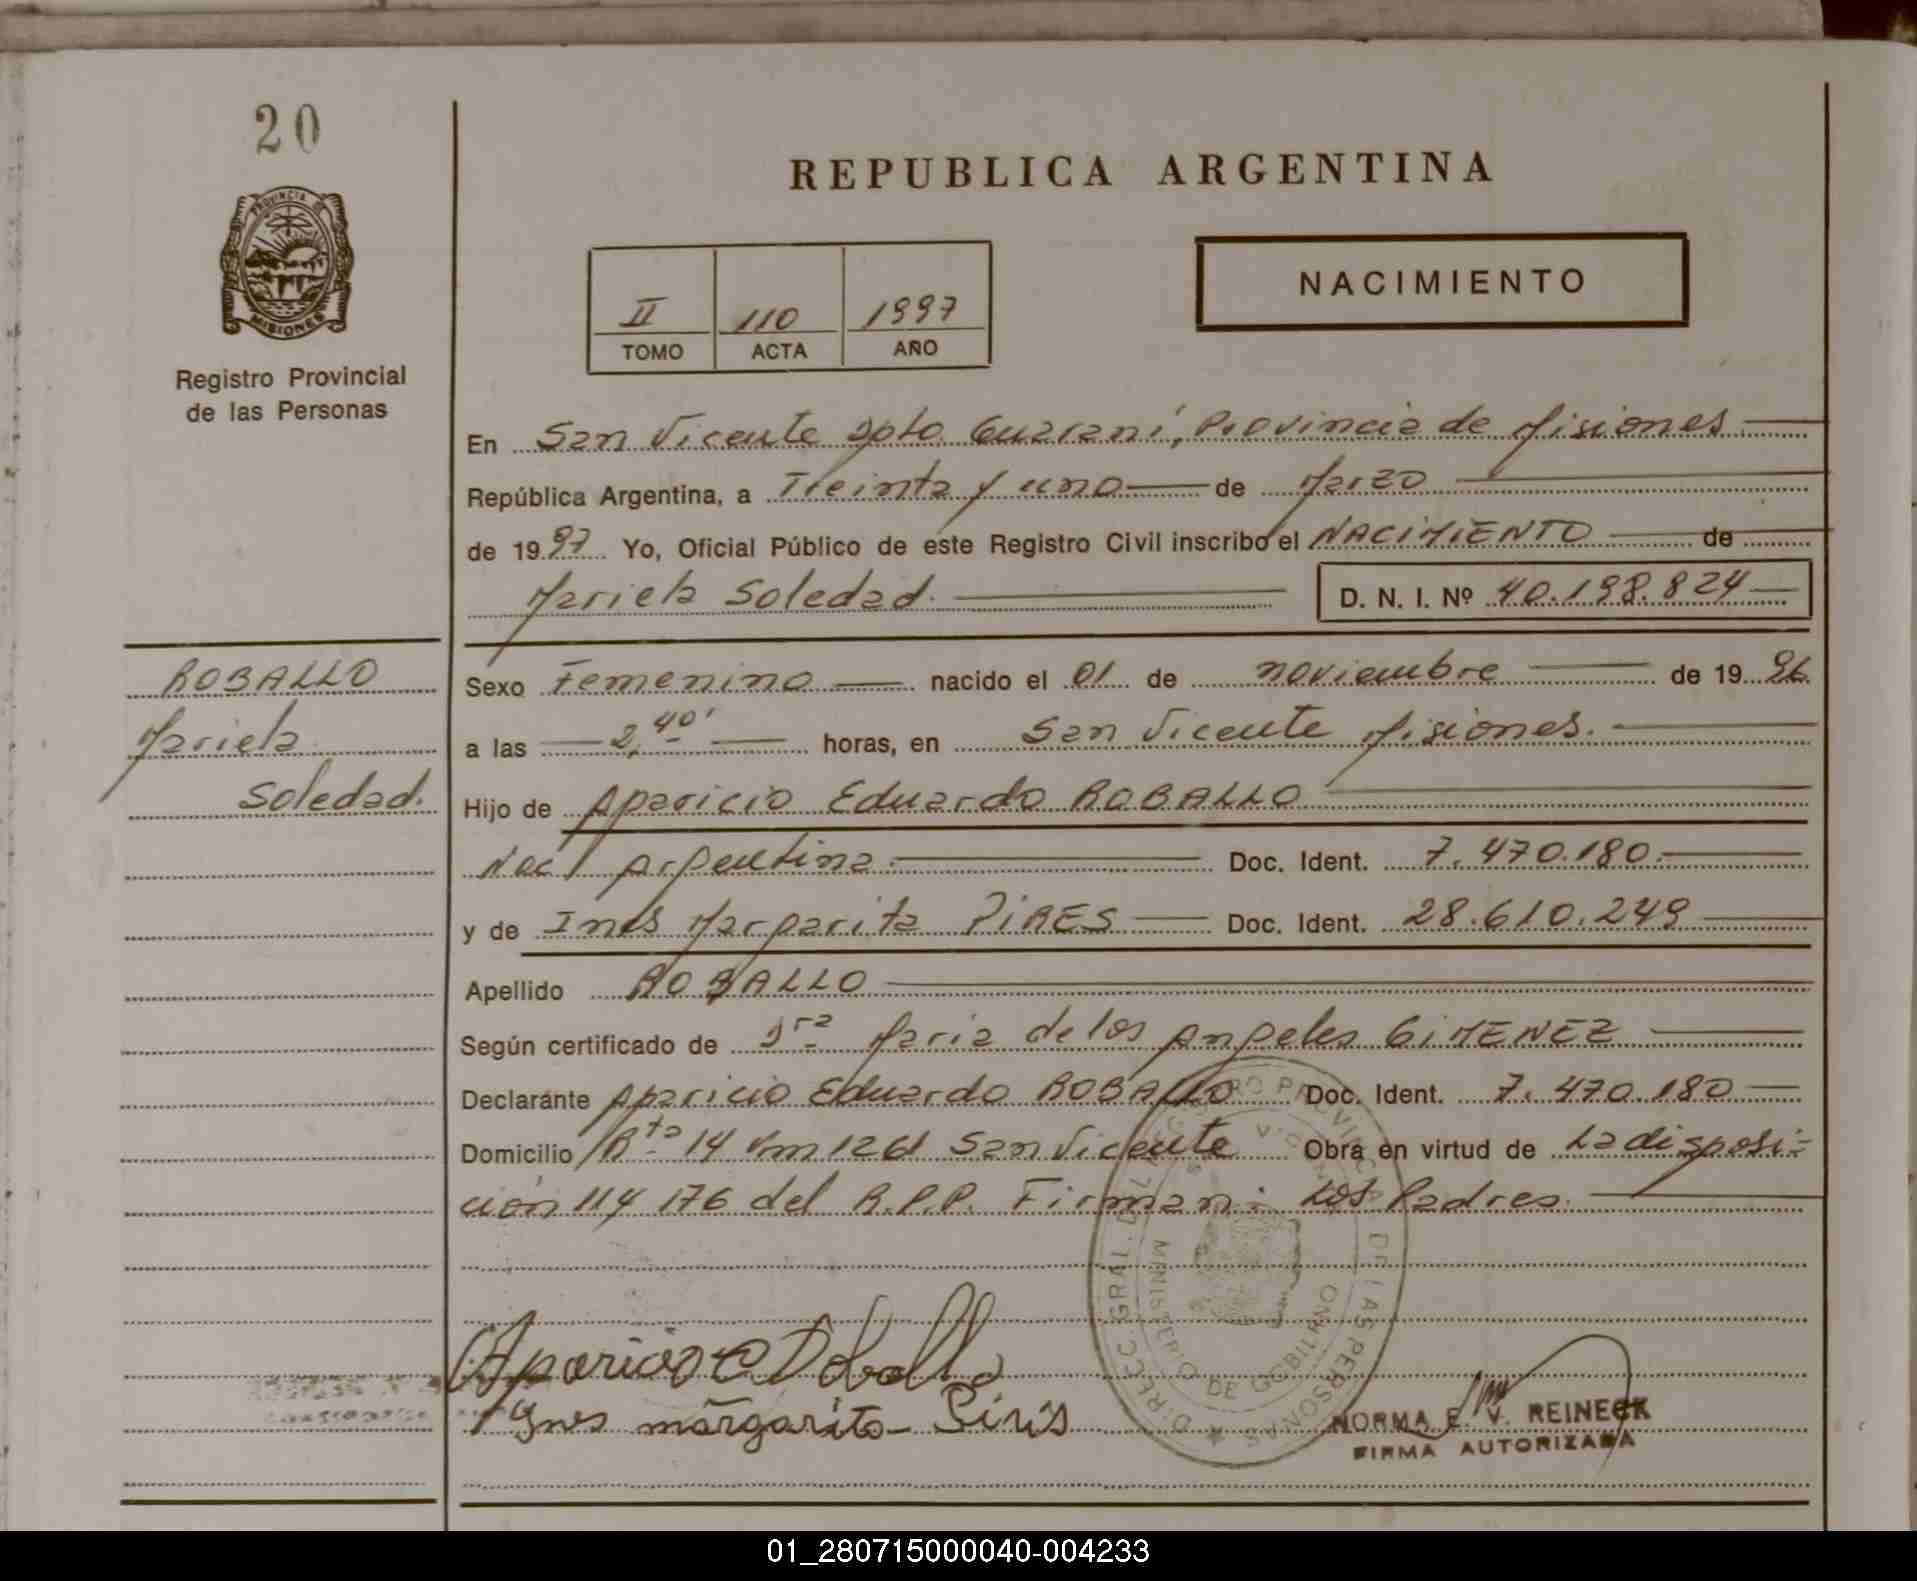 20
REPUBLICA ARGENTINA
PROVINCIA DE
MISIONES
Registro Provincial
de las Personas
NACIMIENTO
II 110 1997
TOMO ACTA AÑO
En San Vicente Dpto Guaraní, Provincia de Misiones
República Argentina, a Treinta y uno de Marzo
de 1997 Yo, Oficial Público de este Registro Civil inscribo el NACIMIENTO de
Mariela Soledad. D. N. I. Nº 40.198.824
ROBALLO
Mariela
Soledad.
Sexo Femenino nacido el 01 de noviembre de 1996.
a las 2,40' horas, en San Vicente Misiones.
Hijo de Aparicio Eduardo ROBALLO
Nac/ Argentina. Doc. Ident. 7.470.180.
y de Ines Margarita PIRES Doc. Ident. 28.610.249
Apellido ROBALLO
Según certificado de Dra Maria de los Angeles GIMENEZ
Declarante Aparicio Eduardo ROBALLO Doc. Ident. 7.470.180
Domicilio Rta 14 Km 1261 San Vicente Obra en virtud de La disposi=
ción 114/176 del R.P.P. Firman: Los Padres.
DIRECC. GRAL. DEL REGISTRO PROVINCIAL DE LAS PERSONAS
MINISTERIO DE GOBIERNO
Aparicio E Roballo
Ynes margarita Piris
NORMA E. V. REINECK
FIRMA AUTORIZADA
01_280715000040-004233